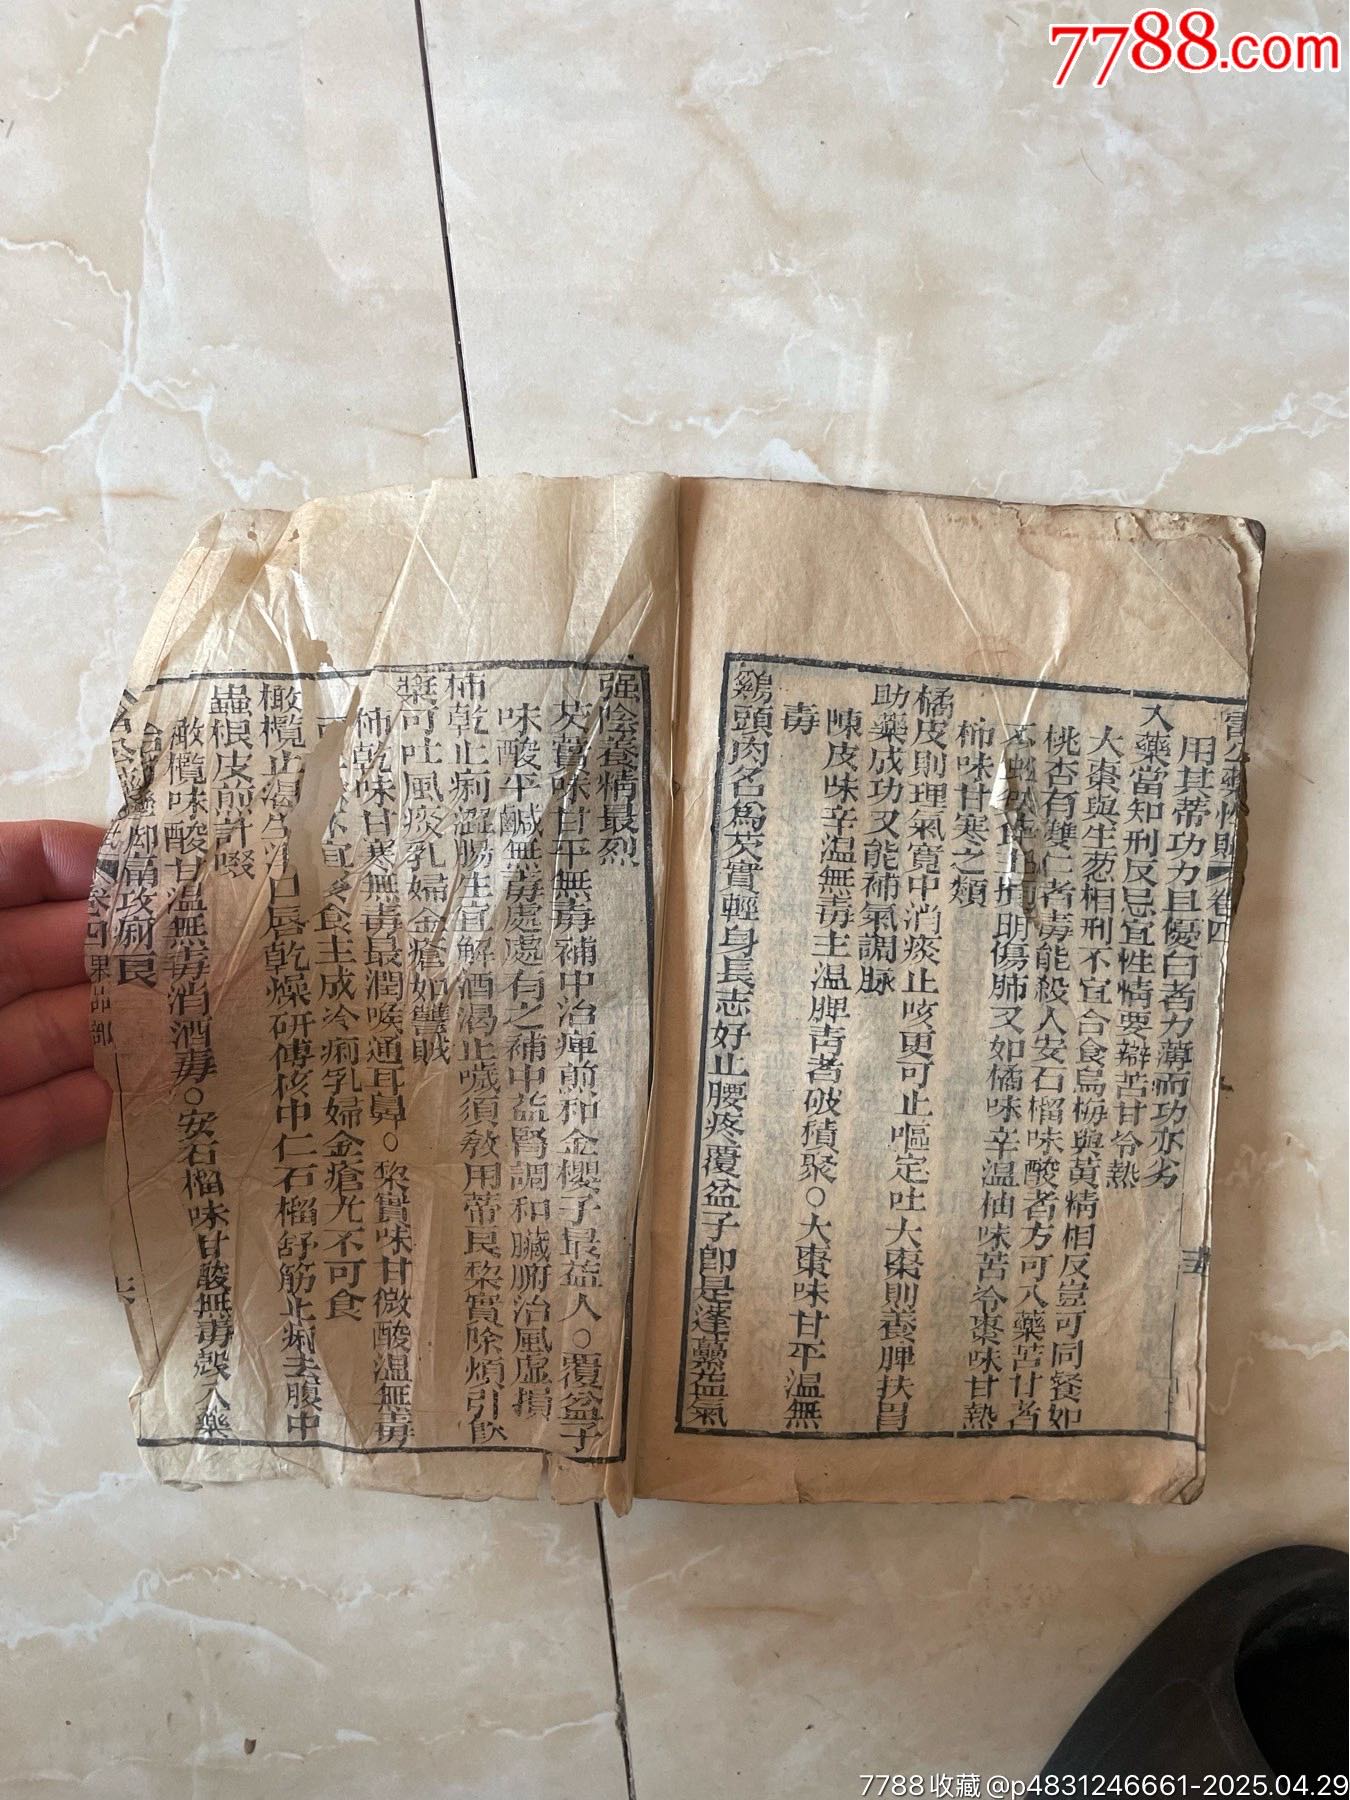 7788.com
雷公藥性賦 卷四 十五
用其蒂功力且優白者力薄而功亦劣
入藥當知刑反忌宜性情要辯苦甘冷熱
大棗與生葱相刑不宜合食烏梅與黃精相反豈可同餐如
桃杏有雙仁者毒能殺人安石榴味酸者方可入藥苦甘者
損明傷肺又如橘味辛温柚味苦冷棗味甘熱
柿味甘寒之類
橘皮則理氣寬中消痰止咳更可止嘔定吐大棗則養脾扶胃
助藥成功又能補氣調脉
陳皮味辛温無毒主温脾青者破積聚○大棗味甘平温無
毒
鷄頭肉名爲芡實輕身長志好止腰疼覆盆子卽是蓬虆益氣
强陰養精最烈
芡實味甘平無毒補中治痺煎和金櫻子最益人○覆盆子
味酸平鹹無毒處處有之補中益腎調和臟腑治風虛損
柿乾止痢澀腸生宜解酒渴止噦須教用蒂民棃實除煩引飲
漿可吐風痰乳婦金瘡如讐賊
柿乾味甘寒無毒最潤喉通耳鼻○棃實味甘微酸温無毒
不宜多食主成冷痢乳婦金瘡尤不可食
橄欖止渴生津口唇乾燥研傅核中仁石榴舒筋止痢去腹中
蟲根皮煎許啜
橄欖味酸甘温無毒消酒毒○安石榴味甘酸無毒殼入藥
治筋攣脚痛攻痢良
卷四果品部
7788收藏@p4831246661-2025.04.29